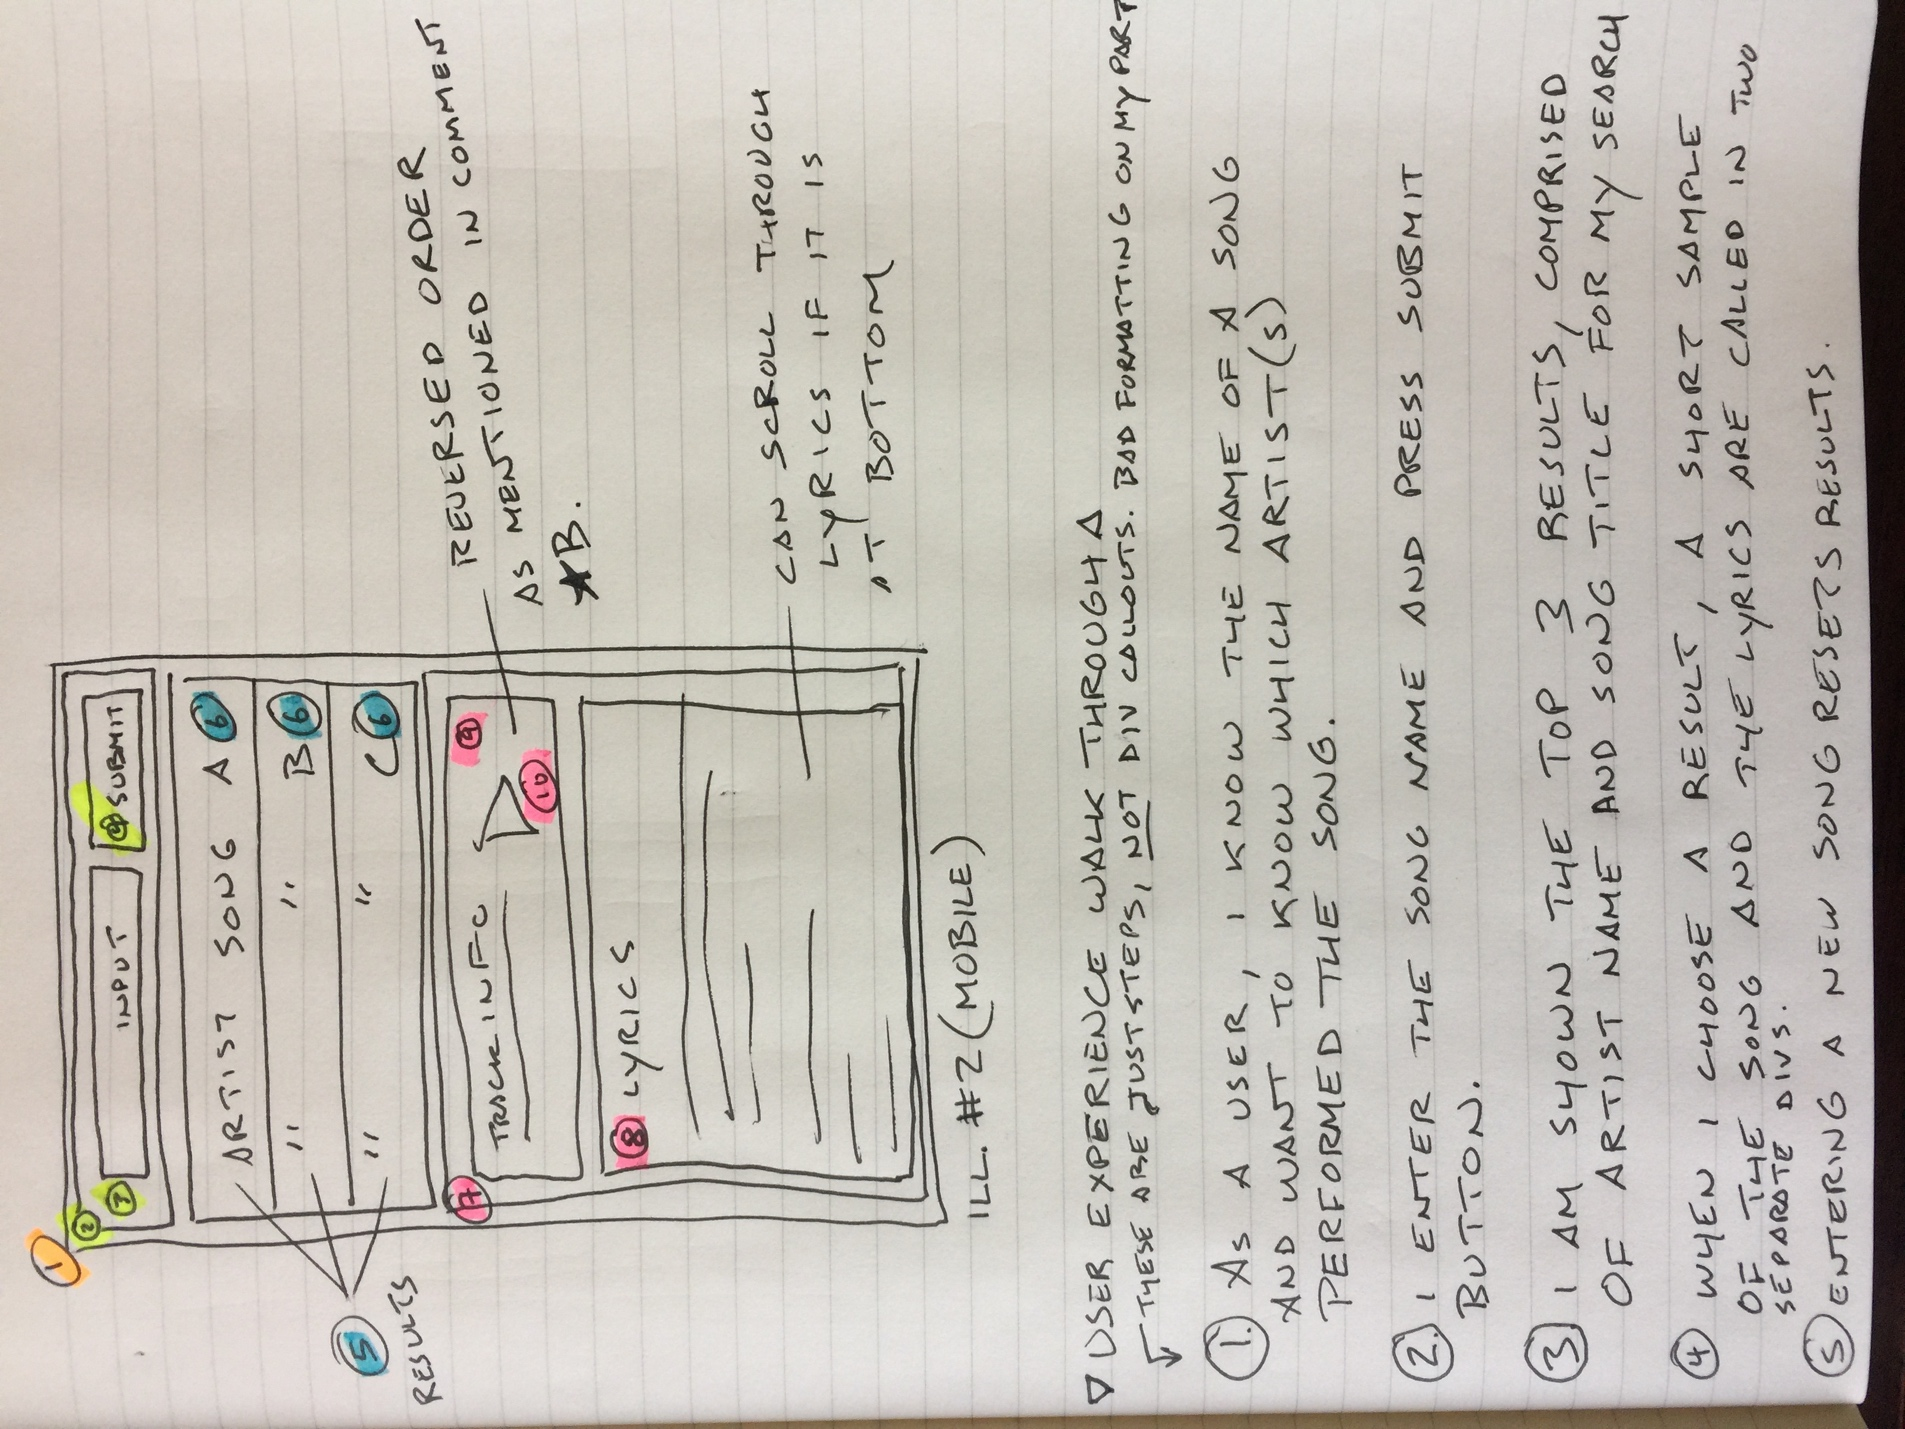 1
2
3
INPUT
4 SUBMIT
ARTIST SONG A 6
" " B 6
" " C 6
5
RESULTS
7
TRACK INFO
9
10
8 LYRICS
REVERSED ORDER
AS MENTIONED IN COMMENT
★B.
CAN SCROLL THROUGH
LYRICS IF IT IS
AT BOTTOM
ILL. #2 (MOBILE)
▽ USER EXPERIENCE WALK THROUGH △
↳ THESE ARE JUST STEPS, NOT DIV CALLOUTS. BAD FORMATTING ON MY PART
1. AS A USER, I KNOW THE NAME OF A SONG
AND WANT TO KNOW WHICH ARTIST(S)
PERFORMED THE SONG.
2. I ENTER THE SONG NAME AND PRESS SUBMIT
BUTTON.
3 I AM SHOWN THE TOP 3 RESULTS, COMPRISED
OF ARTIST NAME AND SONG TITLE FOR MY SEARCH
4 WHEN I CHOOSE A RESULT, A SHORT SAMPLE
OF THE SONG AND THE LYRICS ARE CALLED IN TWO
SEPARATE DIVS.
5 ENTERING A NEW SONG RESETS RESULTS.